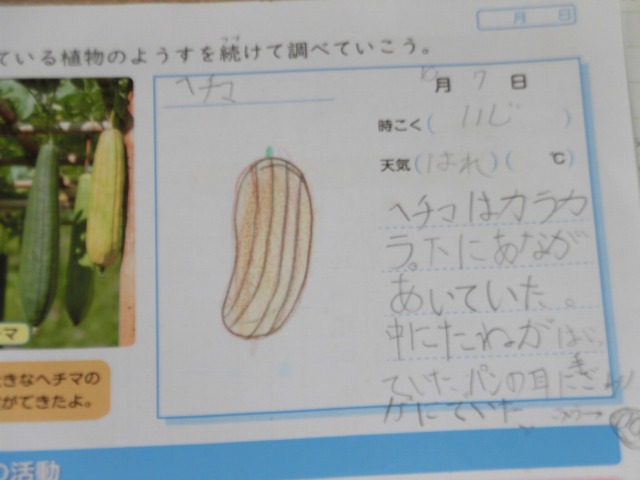 月 日
ている植物のようすを続けて調べていこう。
つづ
ヘチマ
月 7 日
時こく( 11じ )
天気(はれ)( ℃)
ヘチマはカラカ
ラ。下にあなが
あいていた。
中にたねが
ていた。パンの耳に
がにていた
マ
きなヘチマの
ができたよ。
の活動